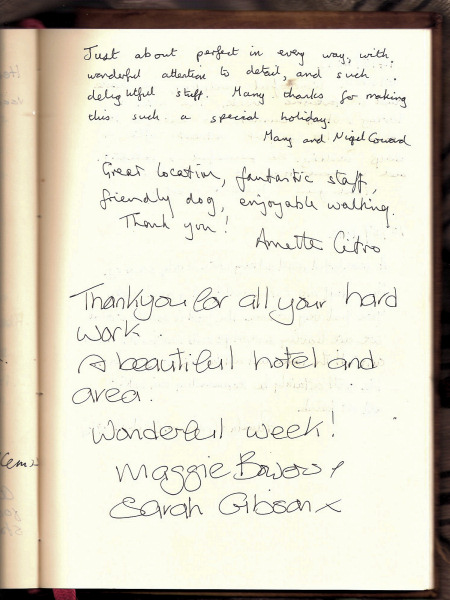 Just about perfect in every way, with
wonderful attention to detail, and such
delightful staff. Many thanks for making
this such a special holiday.
Mary and Nigel Coward
Great location, fantastic staff,
friendly dog, enjoyable walking.
Thank you!
Annette Citro
Thankyou for all your hard
work.
A beautiful hotel and
area.
Wonderful week!
Maggie
Sarah Gibson x